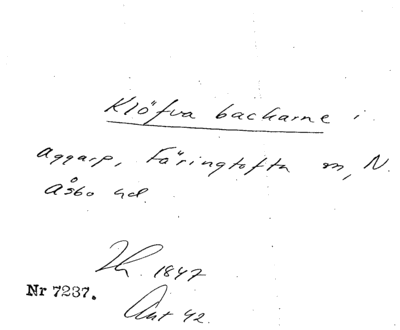 Klöfva backarne i
Aggarp, Färingtofta sn, N.
Åsbo hd.
Th. 1847
Nr 7237.
Ant 42.